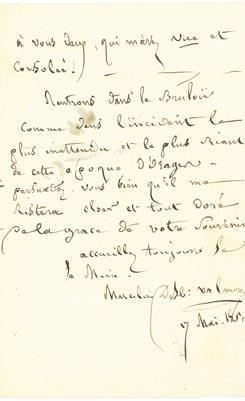 à vous deux, qui m'avez vue et
consolée!
Rentrons dans le Brûloir
comme dans l'incident le
plus inattendu et le plus riant
de cette époque d'orages
persuadez-vous bien qu'il me
restera clair et tout doré
de la grace de votre souvenir
accueillez toujours le
le Mien.
Marceline Desb: valmore
17 Mai